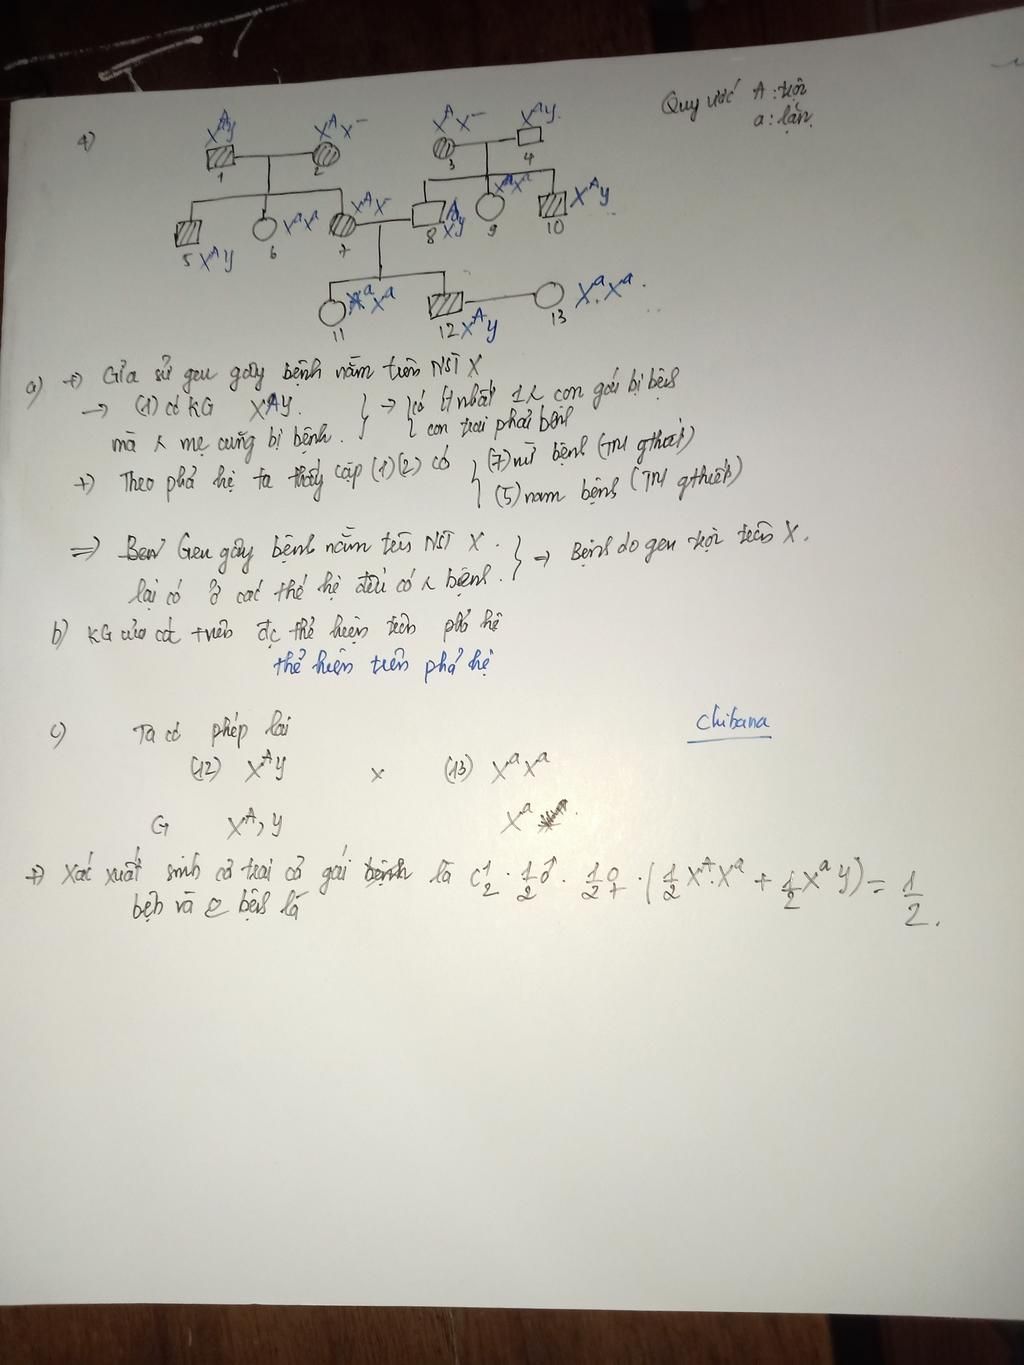 Quy ước A: trội
a: lặn.
4)
X^A Y X^A X^- X^A X^- X^a Y.
1 2 3 4
X^a X^a X^A X^- X^A Y X^a X^a X^A Y
5 X^A Y 6 7 8 9 10
X^a X^a X^a X^a.
11 12 X^A Y 13
a) +) Giả sử gen gây bệnh nằm trên NST X
→ (1) có KG X^A Y. } → { có ít nhất 1 con gái bị bệnh
mà mẹ cũng bị bệnh. con trai phải bệnh
+) Theo phả hệ ta thấy cặp (1)(2) có { (7) nữ bệnh (TM gthiết)
(5) nam bệnh (TM gthiết)
=> Gen gây bệnh nằm trên NST X. } → Bệnh do gen trội trên X.
lại có ở các thế hệ đều có bệnh.
b) KG của các đc thể hiện trên phả hệ
thể hiện trên phả hệ
c) Ta có phép lai
Chibana
(12) X^A Y x (13) X^a X^a
G X^A, Y X^a
+) Xác xuất sinh cả trai cả gái là C^1_2 . 1/2 ♂ . 1/2 ♀ . (1/2 X^A.X^a + 1/2 X^a Y) = 1/2.
bệh và bệnh là